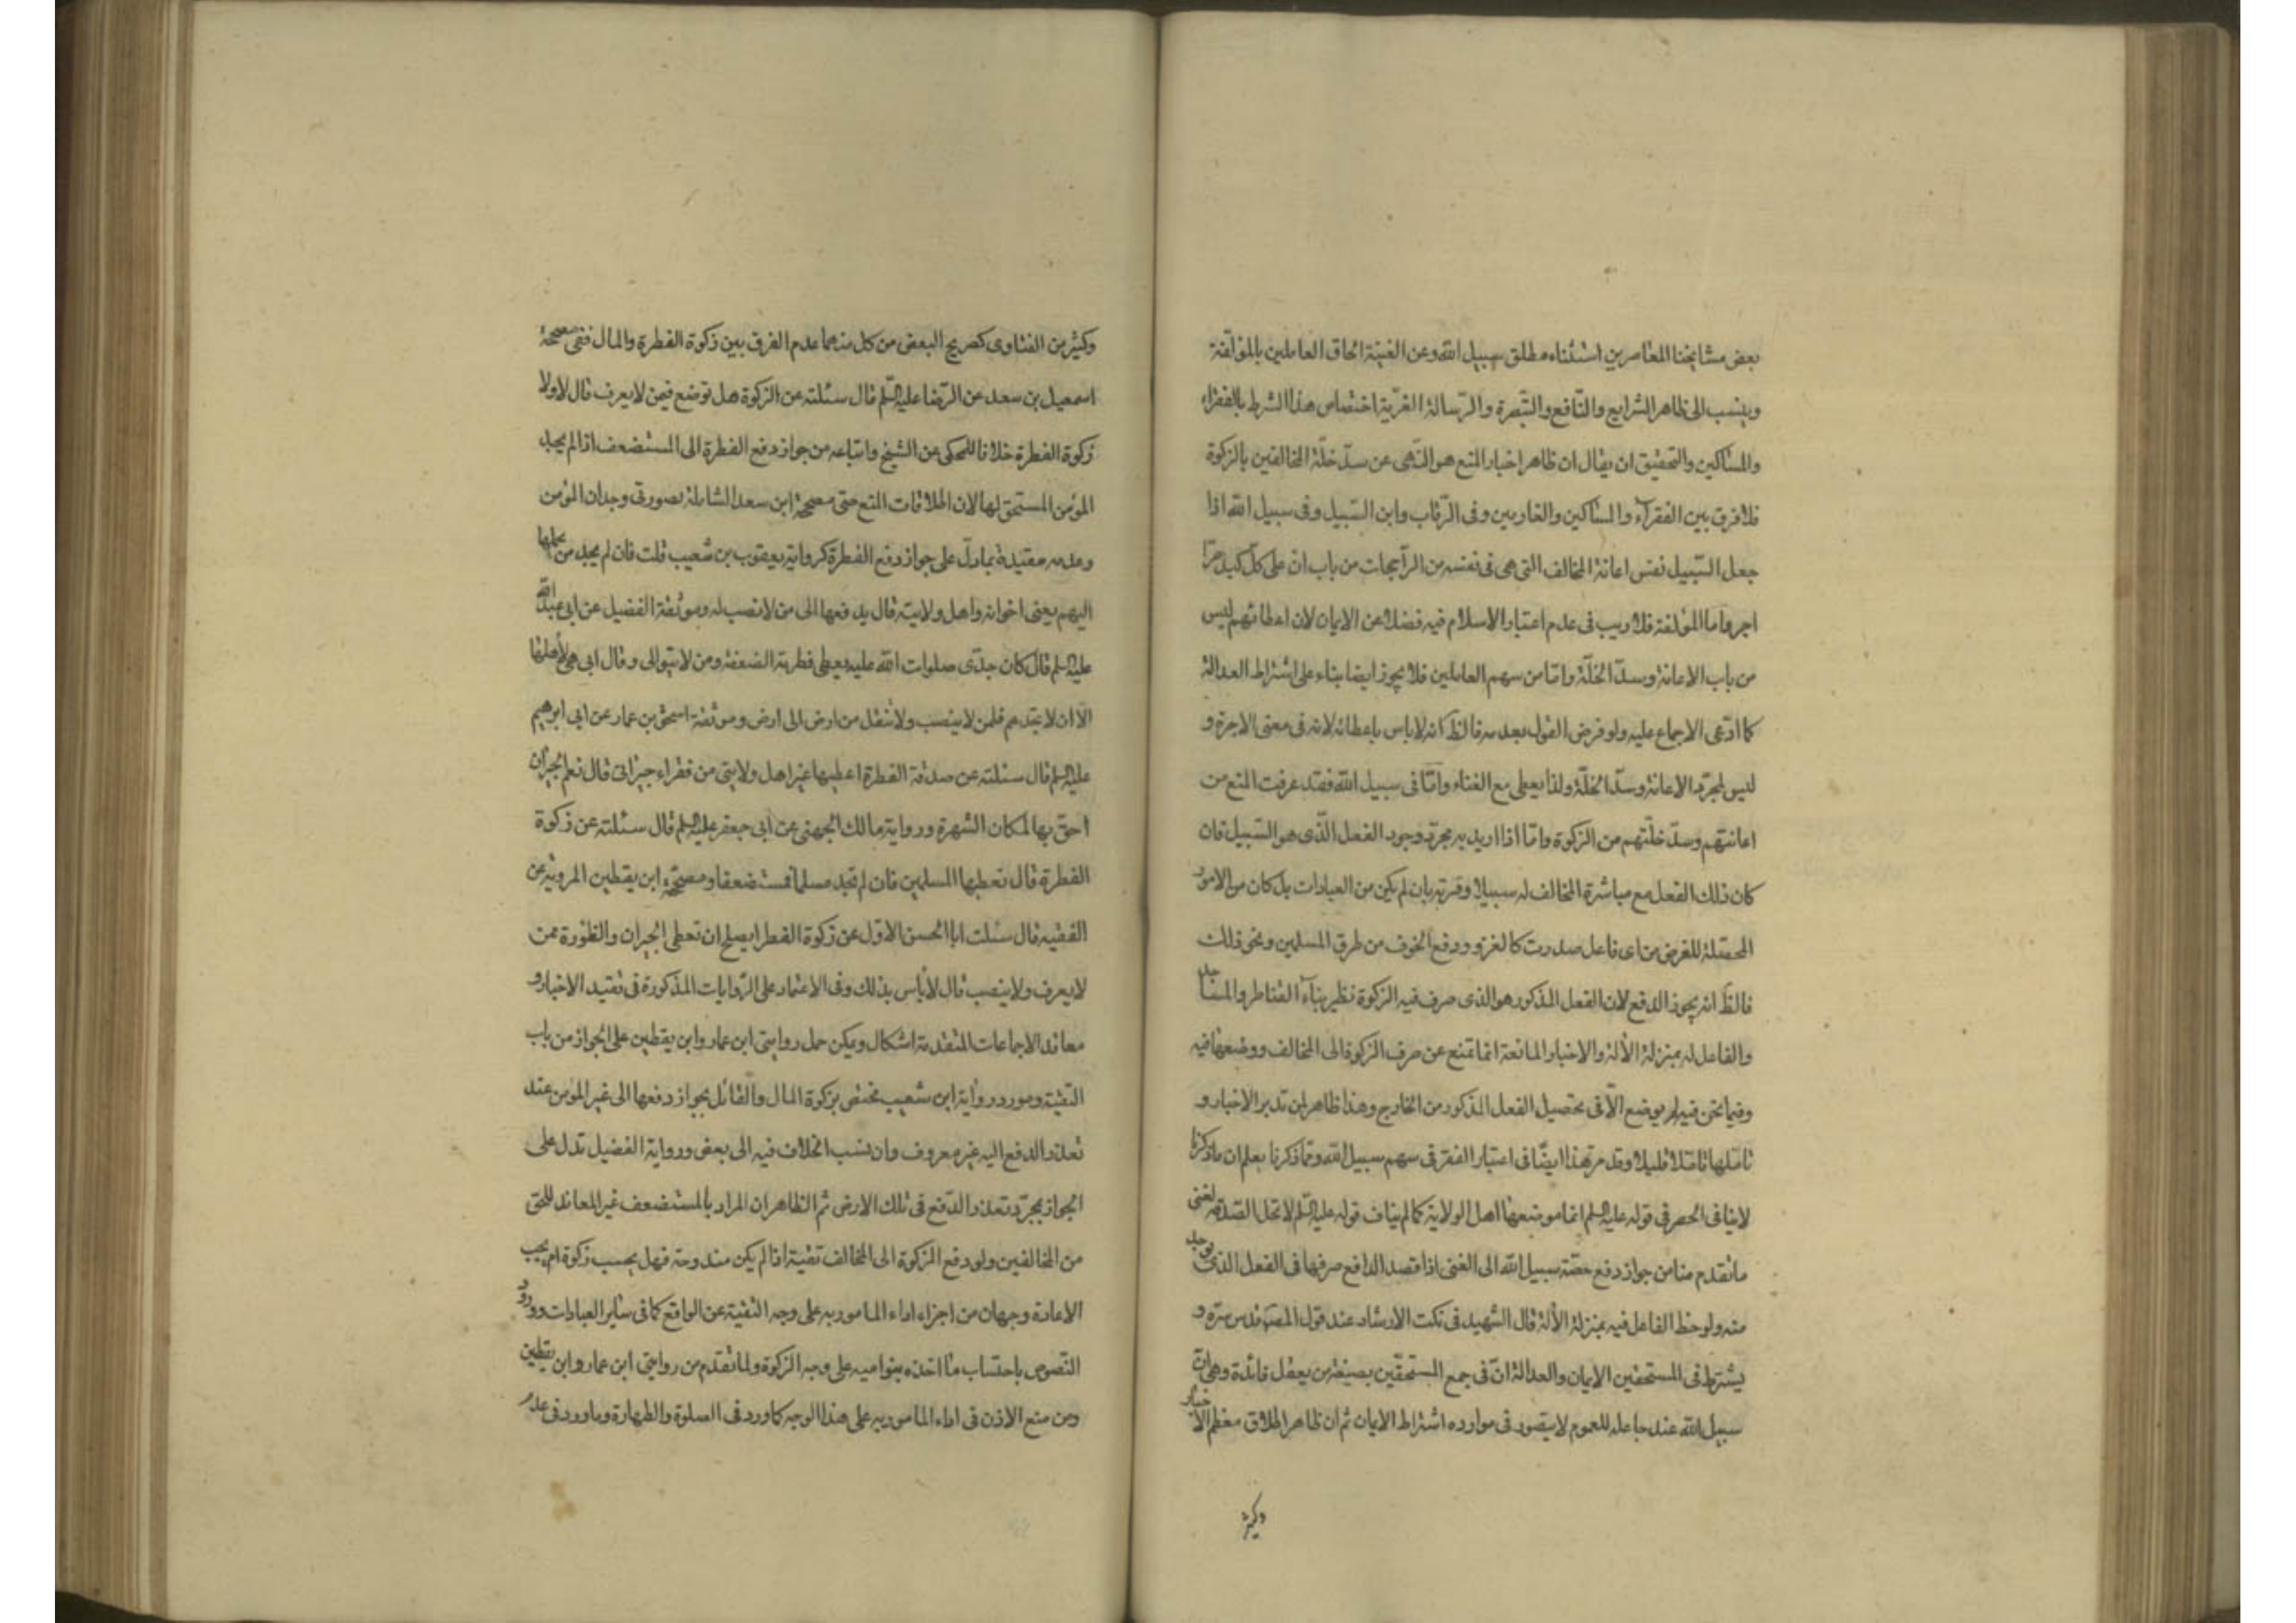 بعض مشايخنا المعاصرين استثناء مطلق سبيل الله وعن الغنية الحاق العاملين بالمؤلفة
وينسب الى ظاهر الشرايع والنافع والتبصرة والرسالة الغرية اختصاص هذا الشرط بالفقراء
والمساكين والتحقيق ان يقال ان ظاهر اخبار المنع هو النهى عن سدّ خلّة المخالفين بالزكوة
فلا فرق بين الفقرآء والمساكين والغارمين وفى الرقاب وابن السبيل وفى سبيل الله اذا
جعل السّبيل نفس اعانة المخالف التى هى فى نفسه من الراجحات من باب ان على كلّ كبد حرّا
اجر واما المؤلفة فلا ريب فى عدم اعتبار الاسلام فيه فضلا عن الايمان لان اعطائهم ليس
من باب الاعانة وسدّ الخلّة وامّا من سهم العاملين فلا يجوز ايضا بناء على اشتراط العدالة
كما ادّعى الاجماع عليه ولو فرض القول بعدمه فالظ انه لا باس باعطائه لانه فى معنى الاجرة و
ليس لمجرّد الاعانة وسدّ الخلّة ولذا يعطى مع الغناء وامّا فى سبيل الله فقد عرفت المنع من
اعانتهم وسدّ خلّتهم من الزكوة وامّا اذا اريد به مجرّد وجود الفعل الّذى هو السّبيل فان
كان ذلك الفعل مع مباشرة المخالف له سبيلا وقربة بان لم يكن من العبادات بل كان من الامور
المحصّلة للغرض من اى فاعل صدرت كالغزو ودفع الخوف من طرق المسلمين ونحو ذلك
فالظ انه يجوز الدفع لان الفعل المذكور هو الذى صرف فيه الزكوة نظير بناء القناطر والمساجد
والفاعل له بمنزلة الألة والاخبار المانعة انما تمنع عن صرف الزكوة الى المخالف ووضعها فيه
وفيما نحن فيه لم يوضع الّا فى تحصيل الفعل المذكور من الخارج وهذا ظاهر لمن تدبر الاخبار و
تامّلها تامّلا قليلا وقد مرّ هذا ايضًا فى اعتبار الفقر فى سهم سبيل الله ومما ذكرنا يعلم ان ما ذكرنا
لا ينافى الحصر فى قوله عليه السلم انما موضعها اهل الولاية كما لم يناف قوله عليه السّلم لا تحل الصّدقة لغنى
ما تقدم منا من جواز دفع حصّة سبيل الله الى الغنى اذا قصد الدافع صرفها فى الفعل الذى يوجد
منه ولوحظ الفاعل فيه بمنزلة الألة قال الشهيد فى نكت الارشاد عند قول المصنف قدس سره و
يشترط فى المستحقين الايمان والعدالة انّ فى جمع المستحقّين بصيغة من يعقل فائدة وهى انّ
سبيل الله عند جاعله للعموم لا يتصور فى موارده اشتراط الايمان ثم ان ظاهر اطلاق معظم الاخبار
وكثير
وكثير من الفتاوى كصريح البعض من كل منهما عدم الفرق بين زكوة الفطرة والمال ففى مصححة
اسمعيل بن سعد عن الرّضا عليه السّلم قال سئلته عن الزكوة هل توضع فيمن لا يعرف قال لا ولا
زكوة الفطرة خلافا للمحكى عن الشيخ واتباعه من جواز دفع الفطرة الى المستضعف اذا لم يجد
المؤمن المستحق لها لان اطلاقات المنع حتى مصححة ابن سعد الشاملة لصورتى وجدان المؤمن
وعدمه مقيّدة بما دلّ على جواز دفع الفطرة كرواية يعقوب بن شعيب قلت فان لم يجد من يحملها
اليهم يعنى اخوانه واهل ولايته قال يدفعها الى من لا ينصب له وموثقة الفضيل عن ابى عبد الله
عليه السلم قال كان جدّى صلوات الله عليه يعطى فطرته الضعفة ومن لا يتوالى وقال ابى هى لأهلها
الّا ان لا تجدهم فلمن لا ينصب ولا تنقل من ارض الى ارض وموثقة اسحق بن عمار عن ابى ابرهيم
عليه السلم قال سئلته عن صدقة الفطرة اعطيها غير اهل ولايتى من فقراء جيرانى قال نعم الجيران
احقّ بها لمكان الشهرة ورواية مالك الجهنى عن ابى جعفر عليه السلم قال سئلته عن زكوة
الفطرة قال تعطيها المسلمين فان لم تجد مسلما فمستضعفا ومصحّحة ابن يقطين المروية عن
الفقيه قال سئلت ابا الحسن الاوّل عن زكوة الفطر ايصلح ان تعطى الجيران والظؤرة ممن
لا يعرف ولا ينصب قال لا بأس بذلك وفى الاعتماد على الرّوايات المذكورة فى تقييد الاخبار و
معاقد الاجماعات المتقدمة اشكال ويمكن حمل روايتى ابن عمار وابن يقطين على الجواز من باب
التقيّة ومورد رواية ابن شعيب مختص بزكوة المال والقائل بجواز دفعها الى غير المؤمن عند
تعذر الدفع اليه غير معروف وان نسب الخلاف فيه الى بعض ورواية الفضيل تدل على
الجواز بمجرّد تعذر الدّفع فى تلك الارض ثم الظاهر ان المراد بالمستضعف غير المعاند للحق
من المخالفين ولو دفع الزكوة الى المخالف تقيّة اذا لم يكن مندوحة فهل يحسب زكوة ام يجب
الاعادة وجهان من اجزاء اداء المامور به على وجه التقية عن الواقع كما فى ساير العبادات وورود
النّصوص باحتساب ما اخذه بنو اميه على وجه الزكوة ولما تقدم من روايتى ابن عمار وابن يقطين
ومن منع الاذن فى اداء المامور به على هذا الوجه كما ورد فى الصلوة والطهارة وما ورد فى عدم